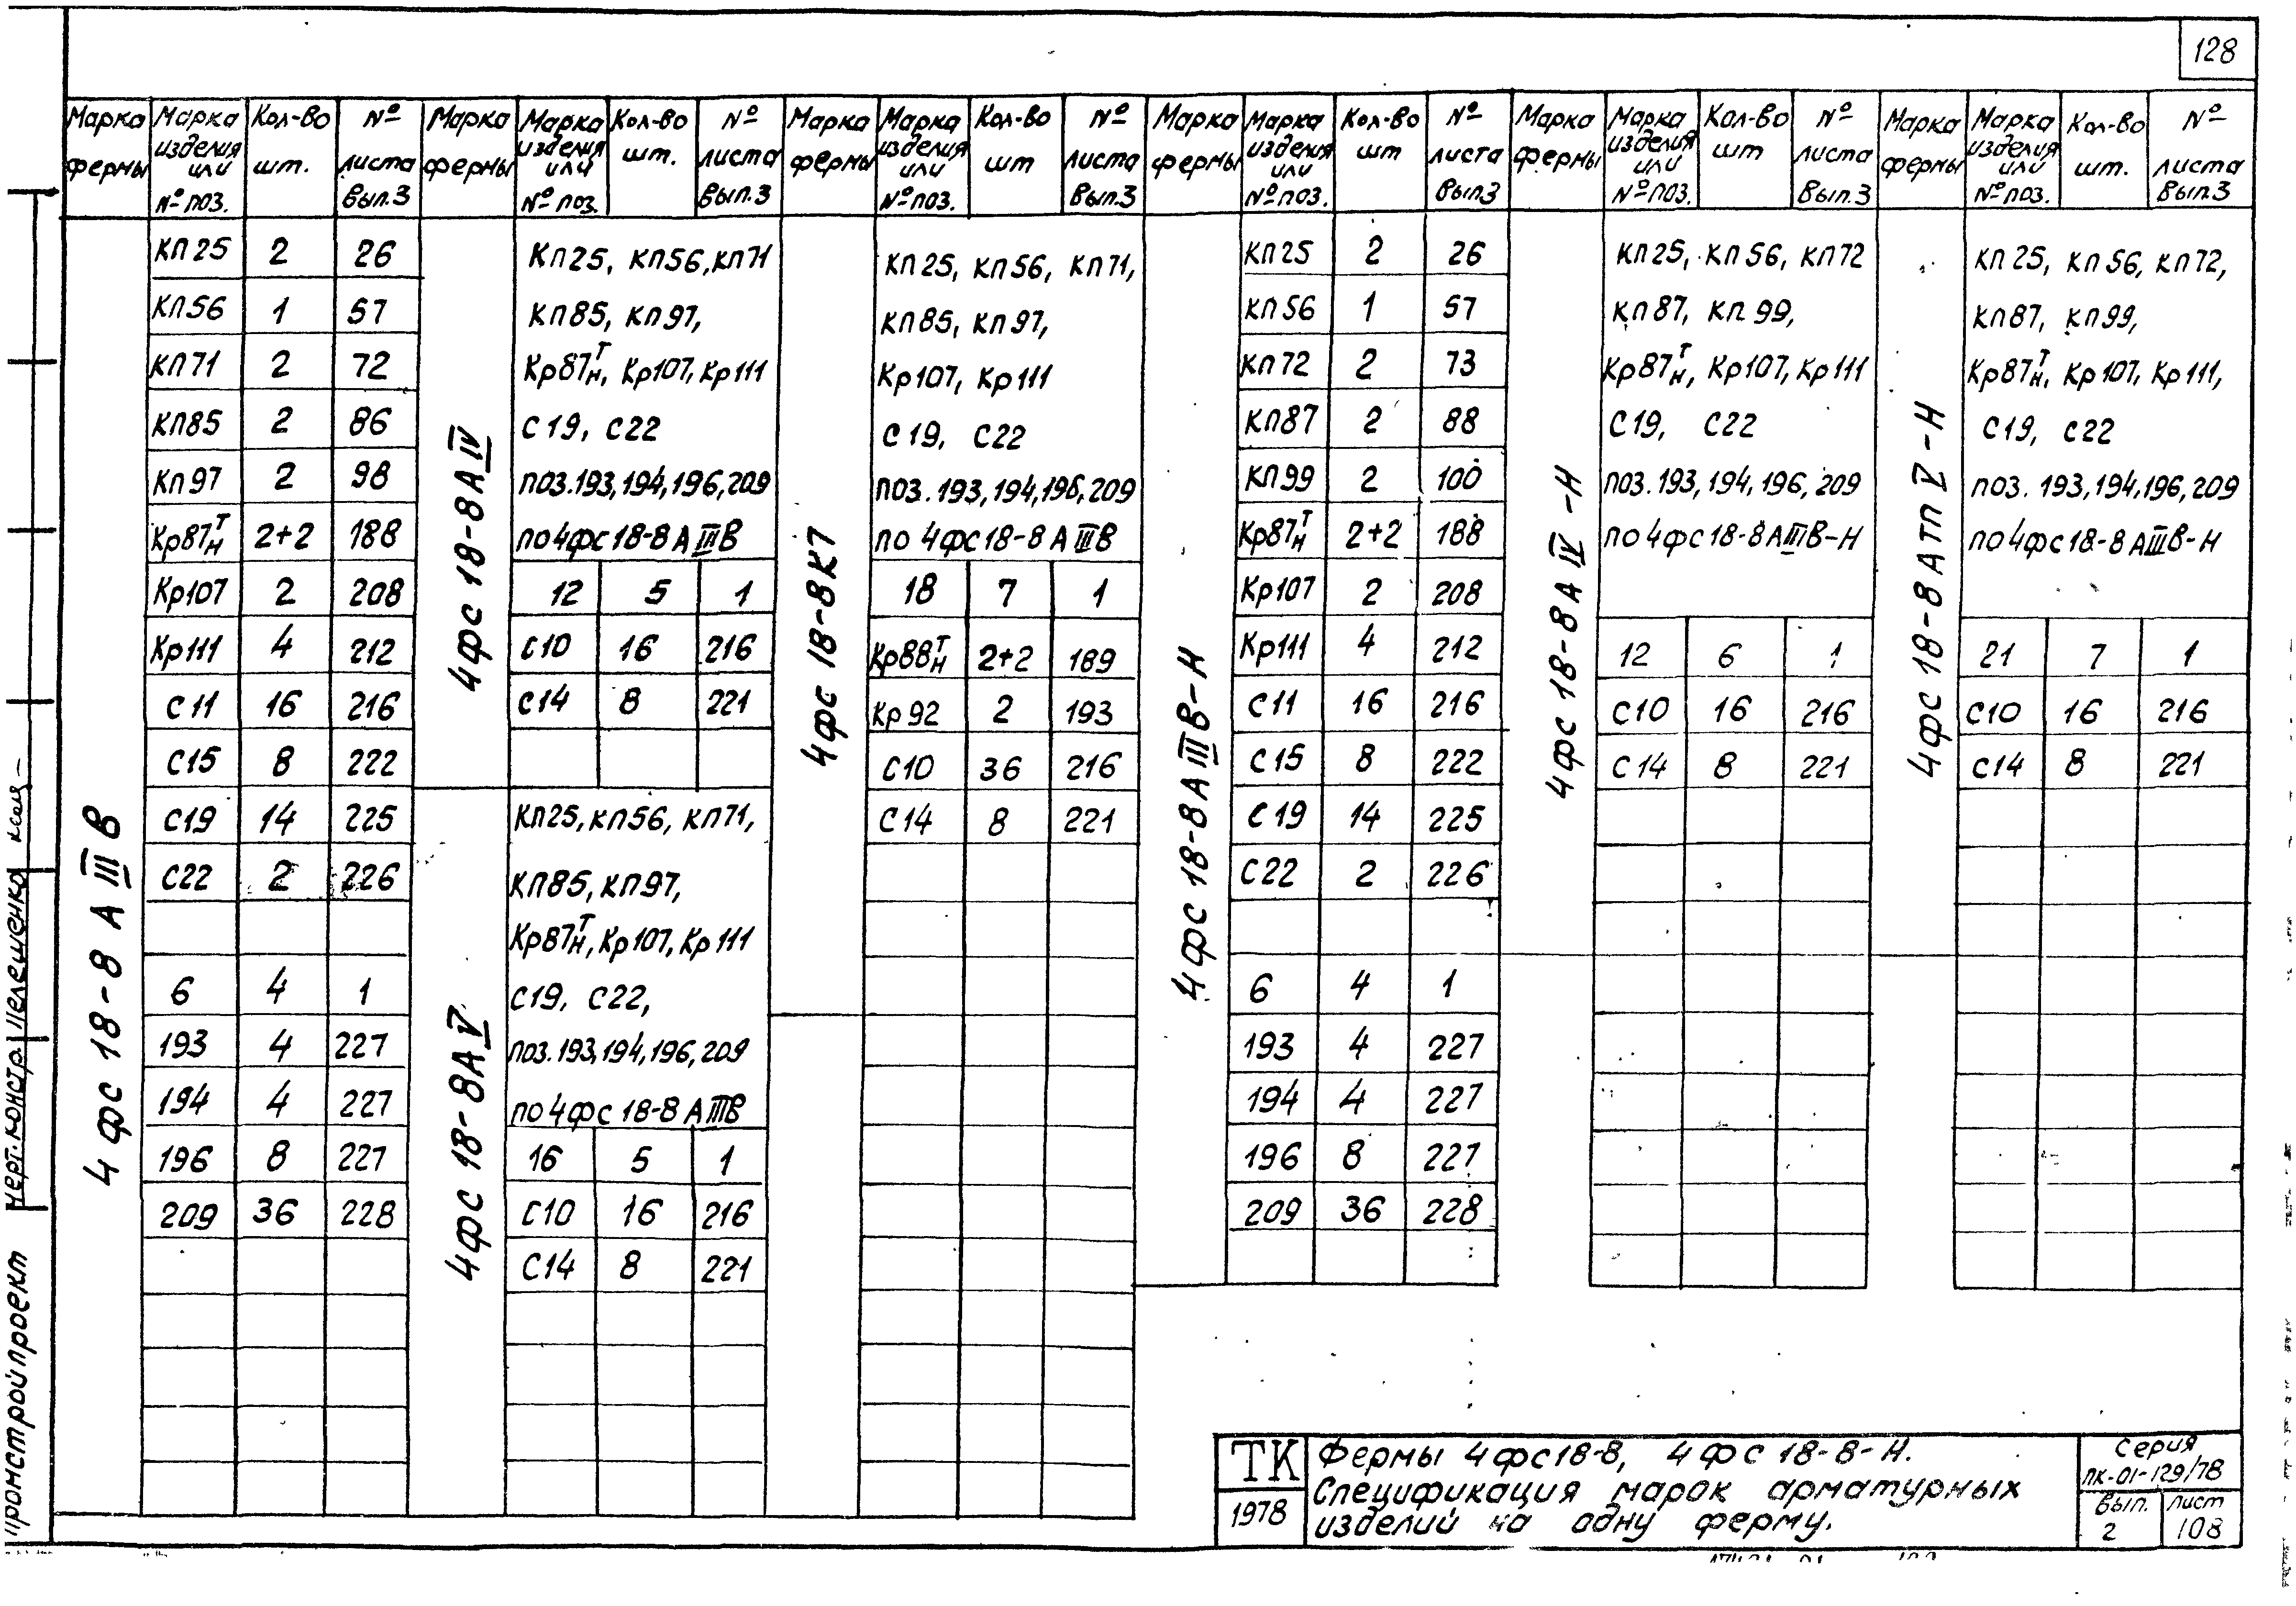 128
Марка фермы | Марка изделия или № поз. | Кол-во шт. | № листа Вып.3 | Марка фермы | Марка изделия или № поз. | Кол-во шт. | № листа Вып.3 | Марка фермы | Марка изделия или № поз. | Кол-во шт | № листа Вып.3 | Марка фермы | Марка изделия или № поз. | Кол-во шт | № листа Вып.3 | Марка фермы | Марка изделия или № поз. | Кол-во шт | № листа Вып.3 | Марка фермы | Марка изделия или № поз. | Кол-во шт. | № листа Вып.3
4фс 18-8 А III В
КП25 2 26
КП56 1 57
КП71 2 72
КП85 2 86
КП97 2 98
Кр87Т/Н 2+2 188
Кр107 2 208
Кр111 4 212
С11 16 216
С15 8 222
С19 14 225
С22 2 226
6 4 1
193 4 227
194 4 227
196 8 227
209 36 228
4фс 18-8А IV
КП25, КП56, КП71
КП85, КП97,
Кр87Т/Н, Кр107, Кр111
С19, С22
поз.193,194,196,209
по 4фс18-8 А III В
12 5 1
С10 16 216
С14 8 221
4фс 18-8А V
КП25, КП56, КП71,
КП85, КП97,
Кр87Т/Н, Кр107, Кр111
С19, С22,
поз.193,194,196,209
по 4фс 18-8 А III В
16 5 1
С10 16 216
С14 8 221
4фс 18-8К7
КП25, КП56, КП71,
КП85, КП97,
Кр107, Кр111
С19, С22
поз.193,194,196,209
по 4фс18-8 А III В
18 7 1
Кр88Т/Н 2+2 189
Кр92 2 193
С10 36 216
С14 8 221
4фс 18-8А III В-Н
КП25 2 26
КП56 1 57
КП72 2 73
КП87 2 88
КП99 2 100
Кр87Т/Н 2+2 188
Кр107 2 208
Кр111 4 212
С11 16 216
С15 8 222
С19 14 225
С22 2 226
6 4 1
193 4 227
194 4 227
196 8 227
209 36 228
4фс 18-8А IV-Н
КП25, КП56, КП72
КП87, КП99,
Кр87Т/Н, Кр107, Кр111
С19, С22
поз.193,194,196,209
по 4фс18-8А III В-Н
12 6 1
С10 16 216
С14 8 221
4фс 18-8 Атп V-Н
КП25, КП56, КП72,
КП87, КП99,
Кр87Т/Н, Кр107, Кр111,
С19, С22
поз. 193,194,196,209
по 4фс18-8 А III В-Н
21 7 1
С10 16 216
С14 8 221
ТК
1978
Фермы 4фс18-8, 4фс 18-8-Н.
Спецификация марок арматурных
изделий на одну ферму.
Серия
ПК-01-129/78
Вып.
2
Лист
108
Промстройпроект